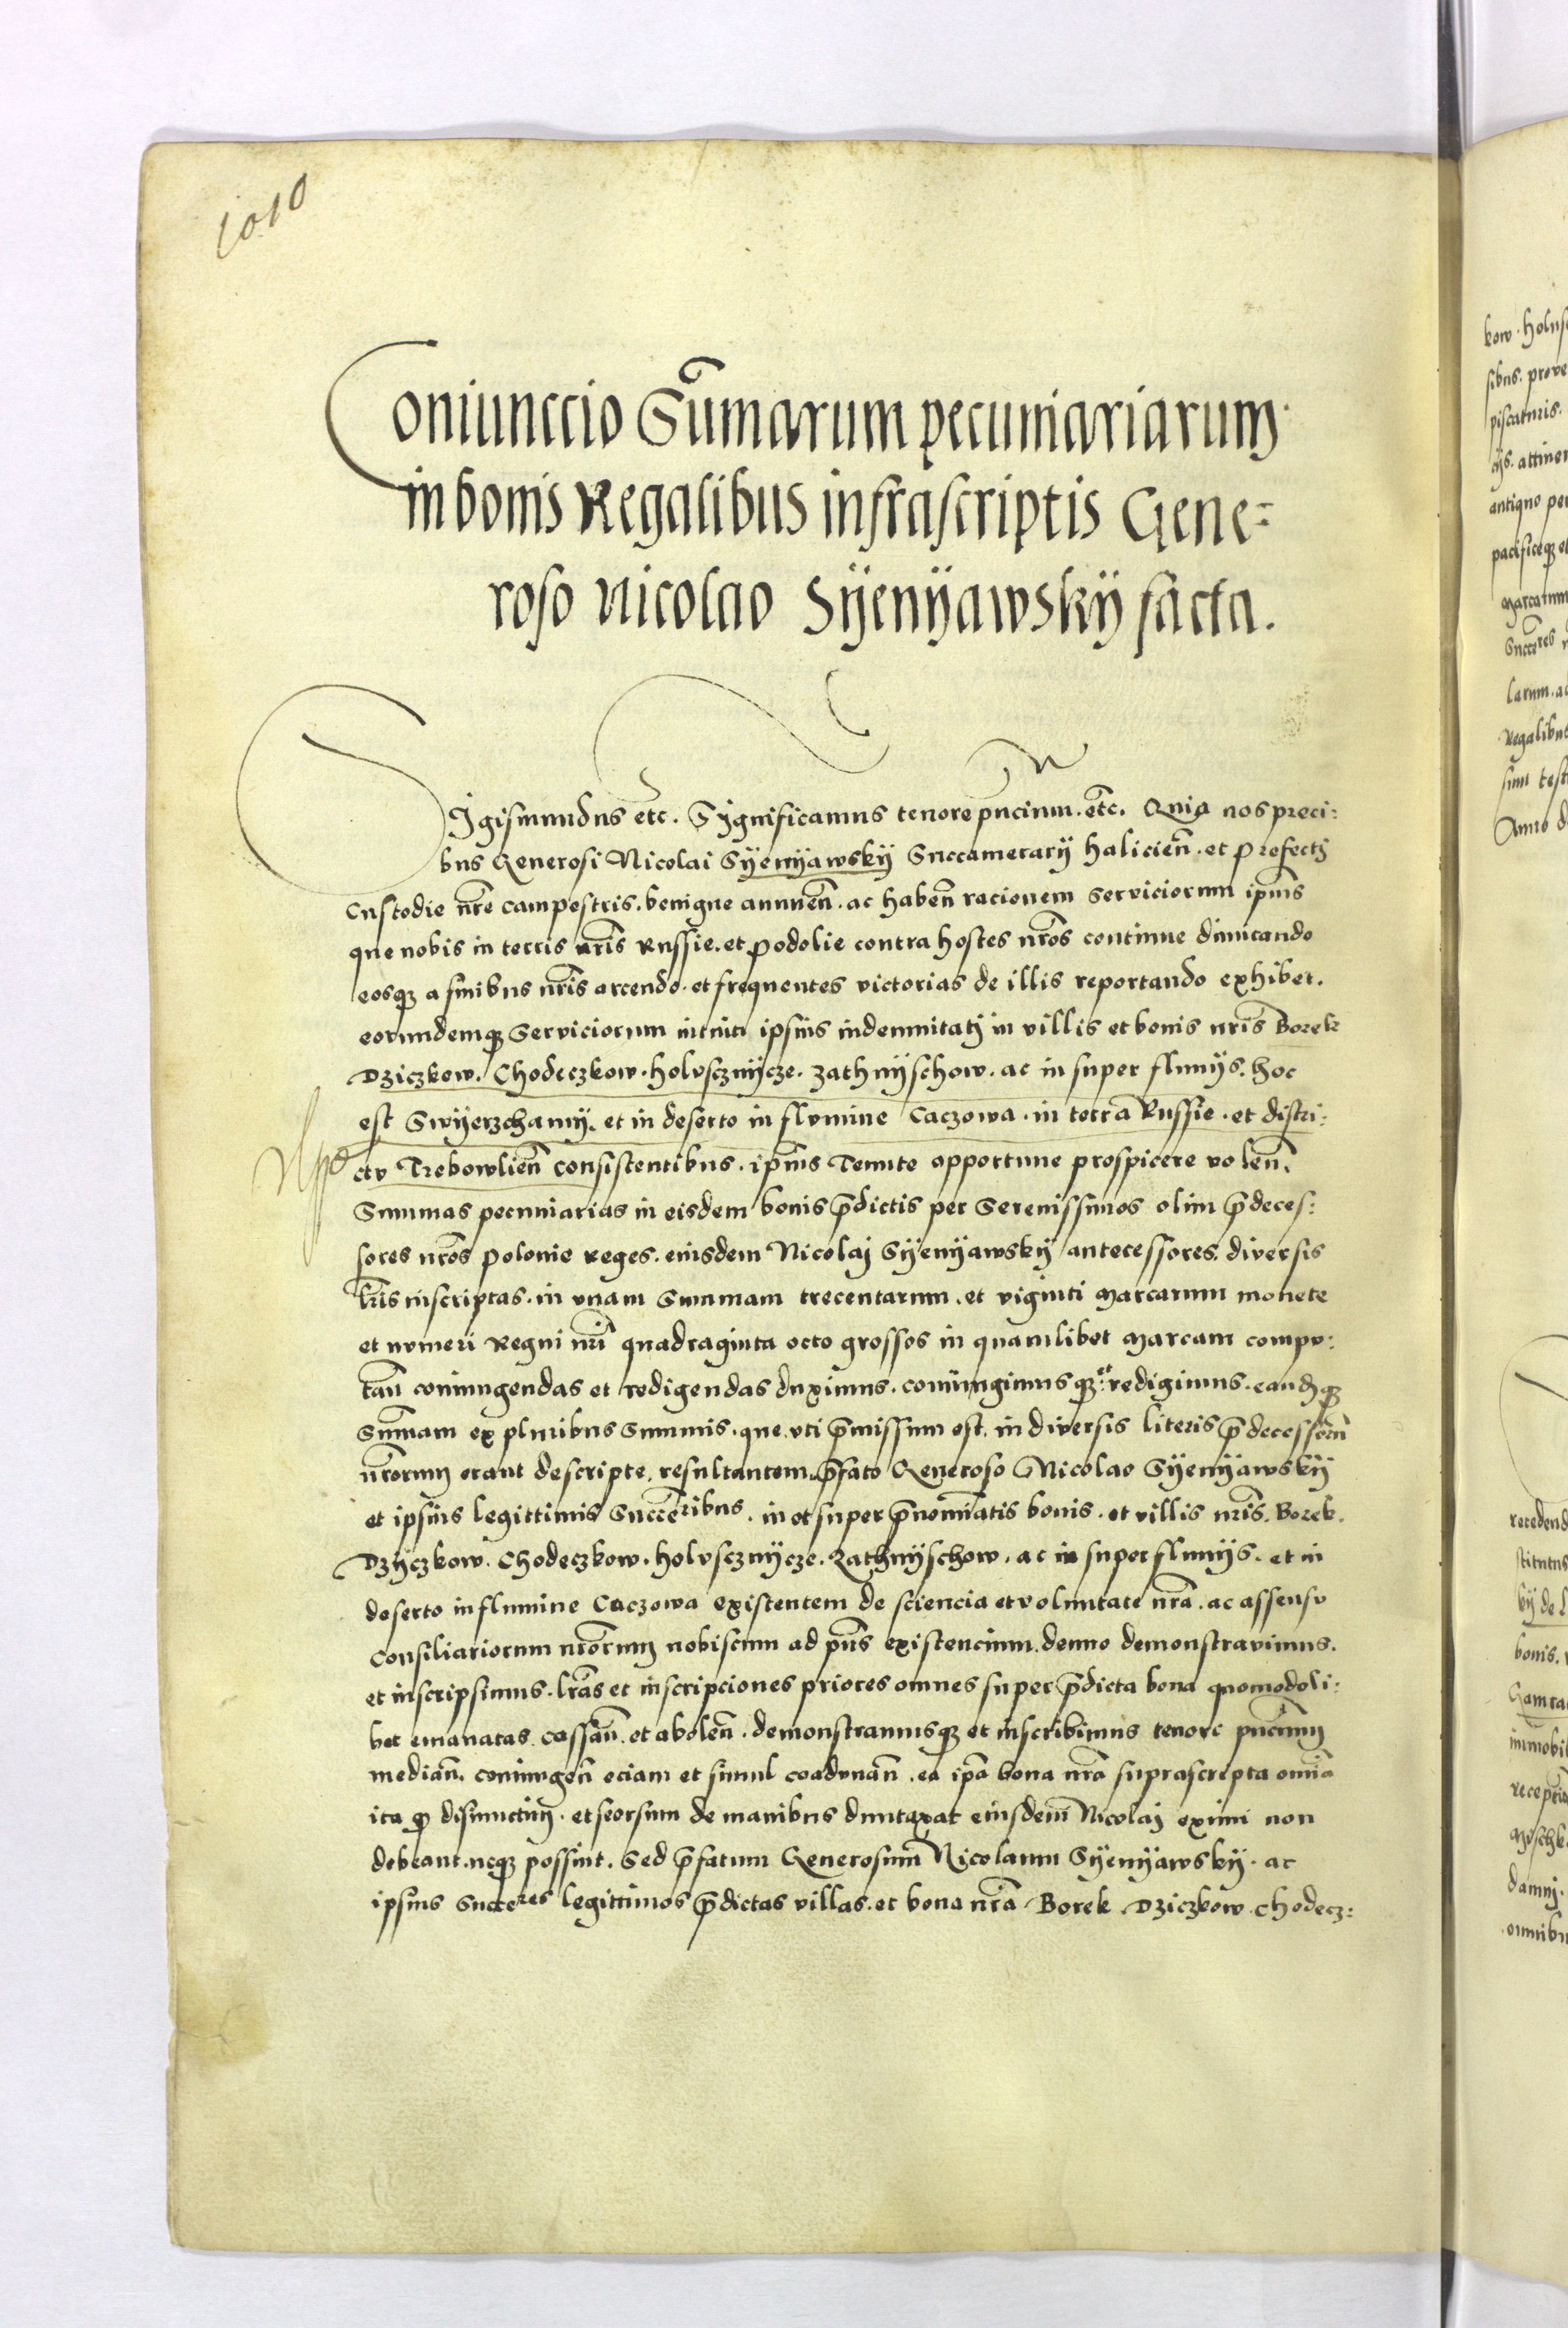 1010
Coniunccio Sum̄arum pecuniariarum
in bonis Regalibus infrascriptis Gene=
roso Nicolao Sÿenÿawskÿ facta.
Sigismundus etc̄. Significamus tenore pn̄cium. etc̄. Quia nos preci:
bus Generosi Nicolai Sÿenÿawskÿ Succamerarÿ halicień. et prefectj
Custodie nr̄e campestris. benigne annuen̄. ac haben̄ racionem serviciorum ip̄ius
que nobis in terris nr̄is Russie. et podolie contra hostes nr̄os continue dimicando
eosqꝫ a finibus nr̄is arcendo. et frequentes victorias de illis reportando exhibet.
eorundemqꝫ Serviciorum intuitu ipsius indemnitatj in villis et bonis nr̄is Borek
Dziczkow. Chodeczkow. holvscznÿcze. zathnÿschow. ac in super fluuÿs. hoc
est Swÿerzchamÿ. et in deserto in flvmine Caczowa. in terra Russie. et distri:
ctv Trebowlien̄ consistentibus. ip̄ius Tenute opportune prospicere volen̄.
Summas pecuniarias in eisdem bonis p̄dictis per Serenissimos olim p̄deces:
sores nr̄os polonie Reges. eiusdem Nicolaj Sÿenÿawskÿ antecessores. diversis
lr̄is inscriptas. in vnam Summam trecentarum. et viginti Marcarum monete
et nvmeri Regni nr̄i quadraginta octo grossos in quamlibet Marcam compv:
tan̄ coniungendas et redigendas duximus. coniungimusqꝫ et redigimus. eandqꝫ
Sum̄am ex pluribus Summis. que vti p̄missum est. in diversis literis p̄decessorū
nr̄orum erant descripte. resultantem. p̄fato Generoso Nicolao Sÿenÿawskÿ
et ipsius legittimis Succ̄eribus. in et super p̄nomiatis bonis. et villis nr̄is. Borek.
Dzÿczkow. Chodeczkow. holvscznÿcze. Zathnÿschow. ac in super fluuÿs. et in
deserto in flumine Caczowa existentem de sciencia et voluntate nr̄a. ac assensv
Consiliariorum nr̄orum nobiscum ad pn̄s existencium. denuo demonstravimus.
et inscripsimus. lr̄as et inscripciones priores omnes super p̄dicta bona quomodoli:
bet emanatas. cassan̄. et abolen̄. demonstramusqꝫ et inscribimus tenore pn̄cium
median̄. coniungen̄ eciam et simul coadvnan̄. ea ip̄a bona nr̄a suprascripta omīa
ita qꝫ disiunctim. et seorsum de manibus duntaxat eiusdem Nicolaj eximi non
debeant. neqꝫ possint. Sed p̄fatum Generosum Nicolaum Sÿenÿawskÿ. ac
ipsius Succeres legittimos p̄dictas villas. et bona nr̄a. Borek. Dziczkow. Chodecz: